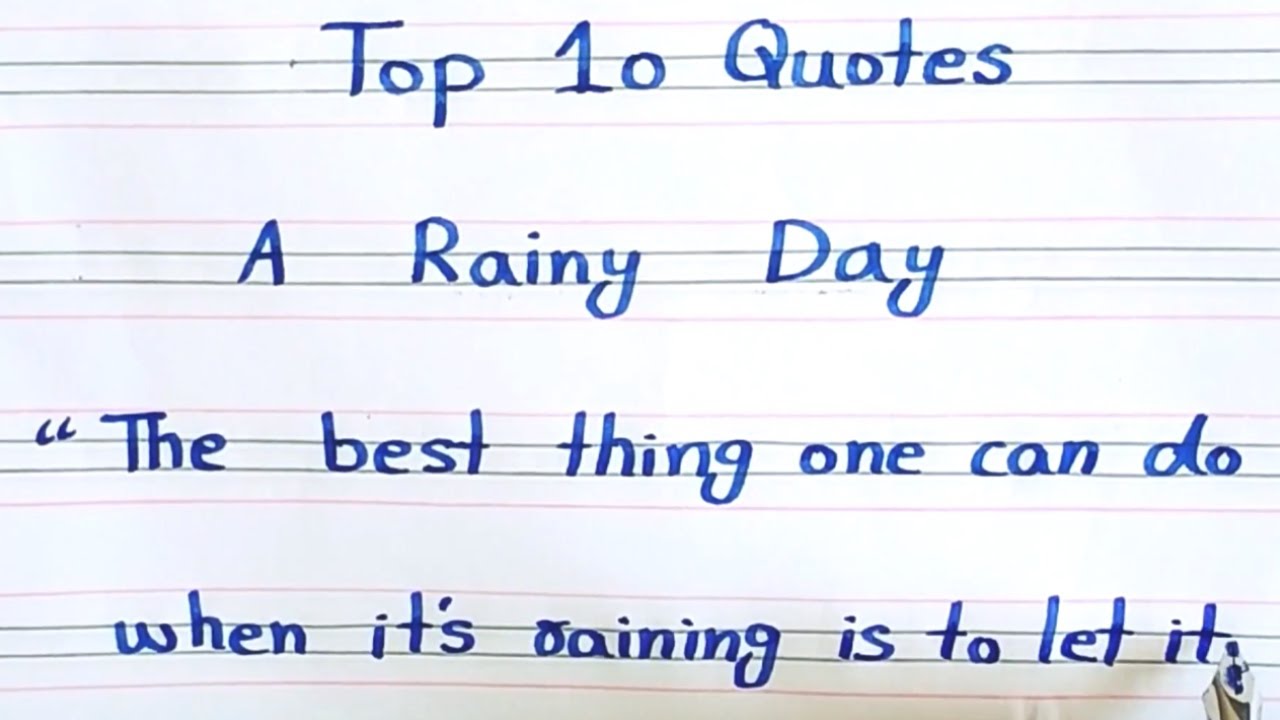 Top 10 Quotes
A Rainy Day
“The best thing one can do
when it's raining is to let it